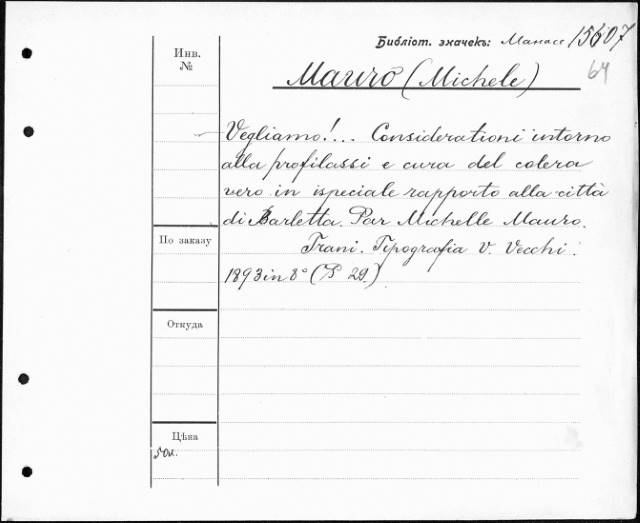 Библіот. значекъ: Манасс 15607
64
Инв.
№
Mauro (Michele)
Vegliamo!... Considerationi intorno
alla profilassi e cura del colera
vero in ispeciale rapporto alla città
di Barletta. Par Michelle Mauro.
По заказу
Trani. Tipografia V. Vecchi.
1893 in 8° (P 29.)
Откуда
Цѣна